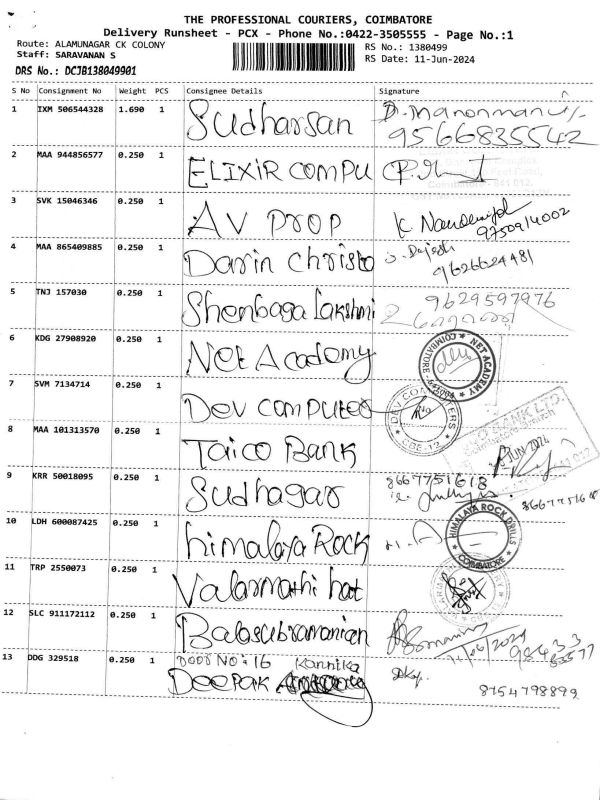 THE PROFESSIONAL COURIERS, COIMBATORE
Delivery Runsheet - PCX - Phone No.:0422-3505555 - Page No.:1
Route: ALAMUNAGAR CK COLONY
RS No.: 1380499
Staff: SARAVANAN S
RS Date: 11-Jun-2024
DRS No.: DCJB138049901
S No Consignment No Weight PCS Consignee Details Signature
1 IXM 506544328 1.690 1 Sudharsan
9566835542
2 MAA 944856577 0.250 1 ELIXIR COMPU
3 SVK 15046346 0.250 1 AV PROP
4 MAA 865409885 0.250 1 Darin Christo
9626624481
5 TNJ 157030 0.250 1 Shenbaga Lakshmi 9629597976
6 KDG 27908920 0.250 1 Net Academy NET ACADEMY COIMBATORE
7 SVM 7134714 0.250 1 Dev computeo DEV COMPUTERS CBE-12
8 MAA 101313570 0.250 1 Taico Bank BANK LTD.
JUN 2024
9 KRR 50018095 0.250 1 Sudhagar 8667751618
10 LDH 600087425 0.250 1 himalaya Rock HIMALAYA ROCK DRILLS COIMBATORE
11 TRP 2550073 0.250 1 Valarmathi hat
12 SLC 911172112 0.250 1 Balasubramanian
13 DDG 329518 0.250 1 Door No: 16 Kannika
Deepak 8754798899